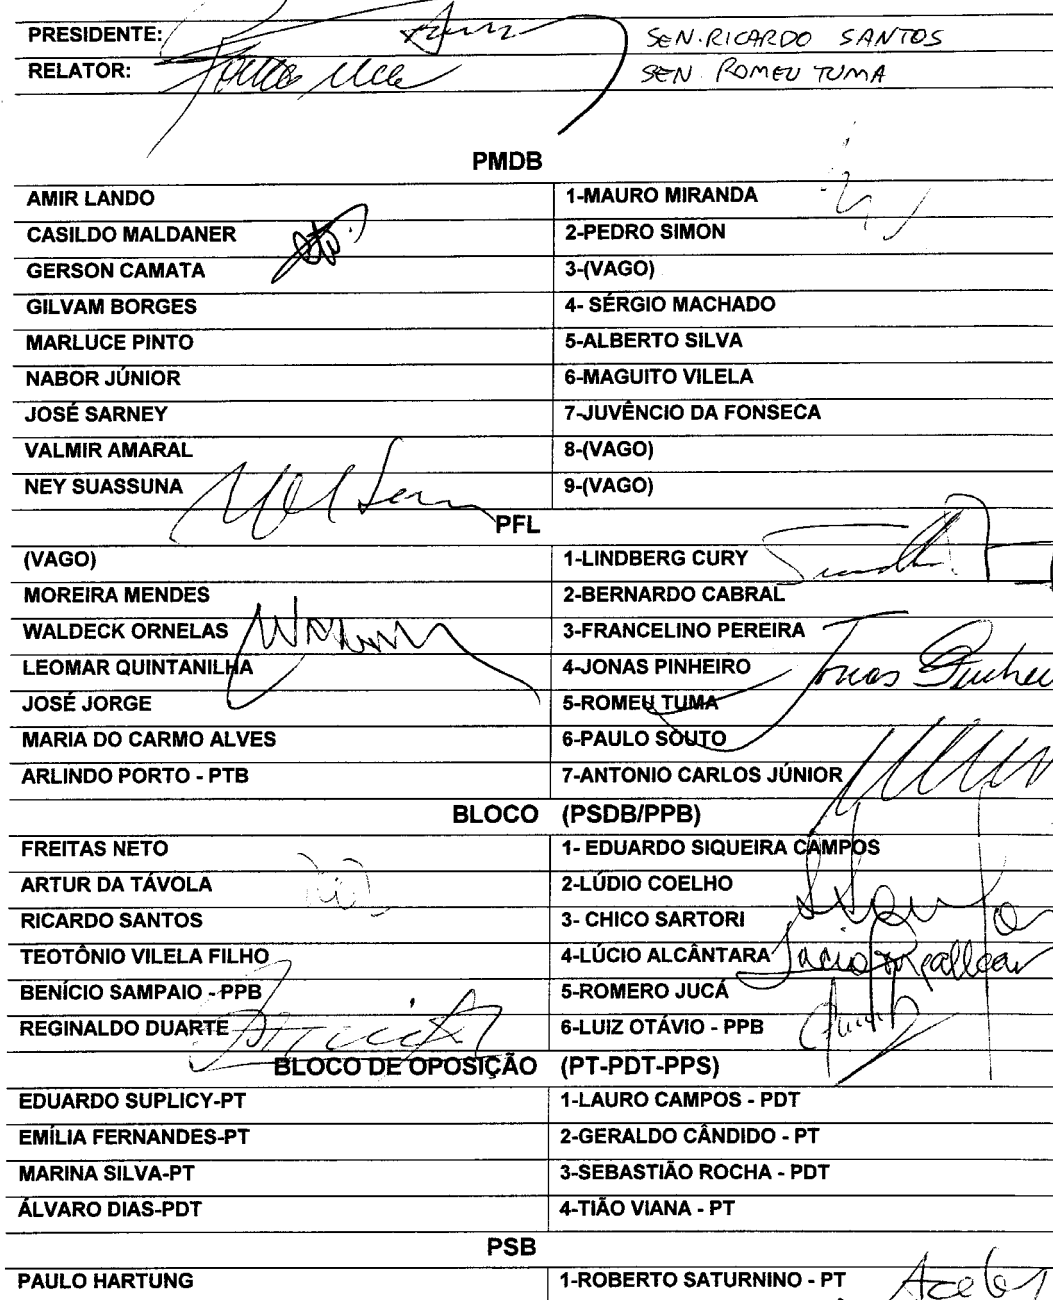 PRESIDENTE: SEN. RICARDO SANTOS
RELATOR: SEN. ROMEU TUMA
PMDB
AMIR LANDO 1-MAURO MIRANDA
CASILDO MALDANER 2-PEDRO SIMON
GERSON CAMATA 3-(VAGO)
GILVAM BORGES 4- SÉRGIO MACHADO
MARLUCE PINTO 5-ALBERTO SILVA
NABOR JÚNIOR 6-MAGUITO VILELA
JOSÉ SARNEY 7-JUVÊNCIO DA FONSECA
VALMIR AMARAL 8-(VAGO)
NEY SUASSUNA 9-(VAGO)
PFL
(VAGO) 1-LINDBERG CURY
MOREIRA MENDES 2-BERNARDO CABRAL
WALDECK ORNELAS 3-FRANCELINO PEREIRA
LEOMAR QUINTANILHA 4-JONAS PINHEIRO Jonas Pinheiro
JOSÉ JORGE 5-ROMEU TUMA
MARIA DO CARMO ALVES 6-PAULO SOUTO
ARLINDO PORTO - PTB 7-ANTONIO CARLOS JÚNIOR
BLOCO (PSDB/PPB)
FREITAS NETO 1- EDUARDO SIQUEIRA CAMPOS
ARTUR DA TÁVOLA 2-LÚDIO COELHO
RICARDO SANTOS 3- CHICO SARTORI
TEOTÔNIO VILELA FILHO 4-LÚCIO ALCÂNTARA
BENÍCIO SAMPAIO - PPB 5-ROMERO JUCÁ
REGINALDO DUARTE 6-LUIZ OTÁVIO - PPB
BLOCO DE OPOSIÇÃO (PT-PDT-PPS)
EDUARDO SUPLICY-PT 1-LAURO CAMPOS - PDT
EMÍLIA FERNANDES-PT 2-GERALDO CÂNDIDO - PT
MARINA SILVA-PT 3-SEBASTIÃO ROCHA - PDT
ÁLVARO DIAS-PDT 4-TIÃO VIANA - PT
PSB
PAULO HARTUNG 1-ROBERTO SATURNINO - PT